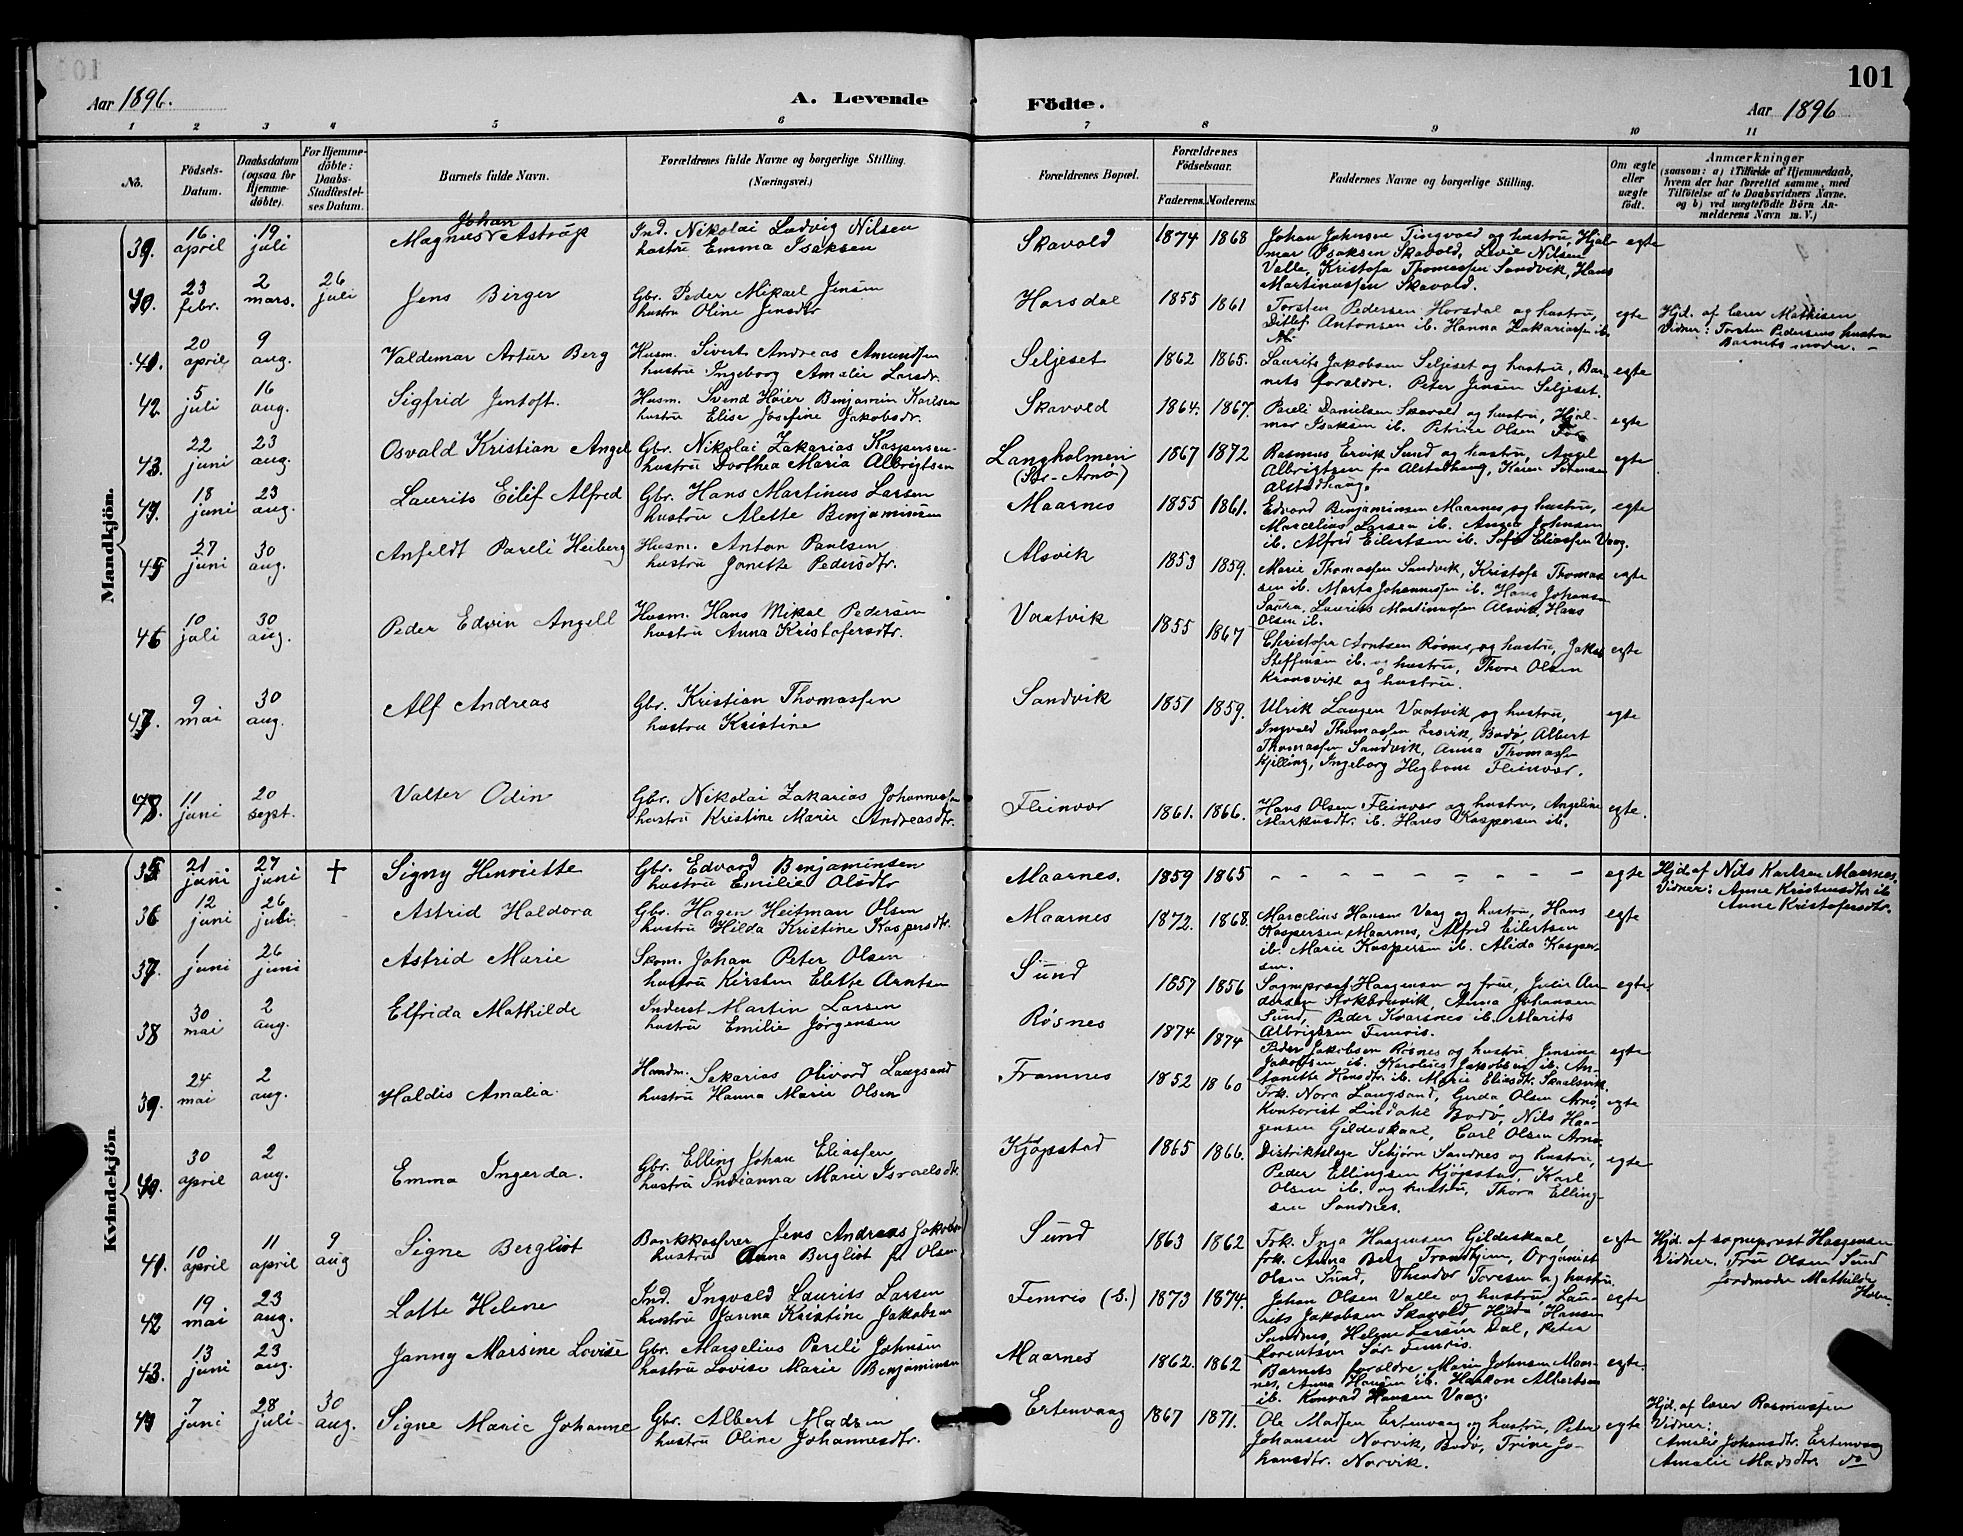 101
Aar 1896. A. Levende Födte. Aar 1896
1 2 3 4 5 6 7 8 9 10 11
No. Födsels-Datum. Daabsdatum (ogsaa for Hjemme-döbte). For Hjemme-döbte: Daabs-Stadfæstel-ses Datum. Barnets fulde Navn. Forældrenes fulde Navne og borgerlige Stilling. (Næringsvei.) Forældrenes Bopæl. Forældrenes Födselsaar. Faderens. Moderens. Faddernes Navne og borgerlige Stilling. Om ægte eller uægte födt. Anmærkninger (saasom: a) i Tilfælde af Hjemmedaab, hvem der har forrettet samme, med Tilföielse af to Daabsvidners Navne. og b) ved uægtefödte Börn An-melderens Navn m. V.)
Mandkjön.
39. 16 april 19 juli Magnus Johan Astrup Ind. Nikolai Ludvig Nilsen
hustru Emma Isaksen Skavold 1874 1868 Johan Johnsen Tingvold og hustru, Hjal-
mar Isaksen Skavold, Nilsen
Valle, Kristofa Thomassen Sandvik, Hans
Martinussen Skavold. egte
40. 23 febr. 2 mars. 26 juli Jens Birger Gbr. Peder Mikael Jensen
hustru Oline Jensdtr Horsdal 1855 1861 Torsten Pedersen Horsdal og hustru,
Ditlef Antonsen ib. Hanna Zakariassen ib. egte Hjd. af lærer Mathisen
Vidner: Torsten Pedersens hustru
Barnets moder.
41. 20 april 9 aug. Valdemar Artur Berg Husm. Sivert Andreas Amundsen
hustru Ingeborg Amalie Larsdr. Seljeset 1862 1865. Laurits Jakobsen Seljeset og hustru, Bar-
nets forældre. Peter Jensen Seljeset. egte
42 5 juli 16 aug. Sigfrid Jentoft. Husm. Svend Høier Benjamin Karlsen
hustru Elise Josefine Jakobsdr. Skavold 1864. 1867. Pareli Danielsen Skavold og hustru, Hjal-
mar Isaksen ib. Petrine Olsen egte
43. 22 juni 23 aug. Osvald Kristian Angel Gbr. Nikolai Zakarias Kaspersen
hustru Dorthea Maria Albrigtsen Langholmen
(Sør-Arnø) 1867 1872 Rasmus Ervik Sund og hustru, Angel
Albrigtsen fra Alstahaug, Karen Sørensen
Alstadhaug. egte
44. 18 juni 23 aug. Laurits Eilif Alfred Gbr. Hans Martinus Larsen
hustru Alette Benjaminsen Maarnes 1855 1861. Edvard Benjaminsen Maarnes og hustru,
Marcelius Larsen ib. Anna Johnsen
ib. Alfred Eilertsen ib. Sofe Eliassen Vaag. egte
45 27 juni 30 aug. Anfeldt Pareli Heiberg Husm. Anton Paulsen
hustru Janette Pedersdtr. Alsvik 1853 1859. Marie Thomassen Sandvik, Kristofa Thomas-
sen ib. Marta Johannessen ib. Hans Johansen
Saura, Laurits Martinussen Alsvik, Hans
Olsen ib. egte
46 10 juli 30 aug. Peder Edvin Angell Husm. Hans Mikal Pedersen
hustru Anna Kristofersdtr. Vaatvik 1855 1867 Christofer Arntsen Røsnes og hustru, Jakob
Steffensen ib. og hustru, Thora Olsen
Kransvik og hustru. egte
47. 9 mai 30 aug. Alf Andreas Gbr. Kristian Thomassen
hustru Kristine Sandvik 1851 1859. Ulrik Langen Vaatvik og hustru,
Ingvald Thomassen Ersvik, Bodø, Albert
Thomassen Sandvik, Anna Thomassen
Kjelling, Ingeborg Hegbom Fleinvær. egte
48. 11 juni 20 sept. Valter Odin Gbr. Nikolai Zakarias Johannessen
hustru Kristine Marie Andreasdtr. Fleinvær 1861. 1866. Hans Olsen Fleinvær og hustru, Angeline
Markusdtr. ib. Hans Kaspersen ib. egte.
Kvindekjön
35 21 juni 27 juni † Signy Henriette Gbr. Edvard Benjaminsen
hustru Emilie Olsdtr Maarnes. 1859 1865 - - - - - - - - - egte Hjd. af Nils Karlsen Maarnes.
Vidner: Anne Kristensdtr ib
Anne Kristofersdtr.
36 12 juni 26 juli. Astrid Haldora Gbr. Hagen Heitman Olsen
hustru Hilda Kristine Kaspersdtr. Maarnes 1872. 1868. Marcelius Hansen Vaag og hustru, Hans
Kaspersen Maarnes, Alfred Eilertsen
ib. Marie Kaspersen ib. Alida Kasper-
sen. egte
37. 1 juni 26 juni Astrid Marie Skom. Johan Peter Olsen
hustru Kirsten Elette Arntsen Sund 1857 1856 Sogneprest Haagensen og frue, Julie An-
dersen Stokbrovik, Anna Johansen
Sund, Peder Kvarsnes ib. Marits
Albrigtsen Femris. egte.
38 30 mai 2 aug. Elfrida Mathilde Inderst Martin Larsen
hustru Emilie Jørgensen Røsnes 1874 1874 Peder Jakobsen Røsnes og hustru, Jensine
Jakobsen ib. Karelius Jakobsen ib. An-
tonette Hansdtr ib. Marie Eliasdtr. Skaalsvik. egte
39. 24 mai 2 aug. Haldis Amalia. Handm. Sakarias Olivard Langsand
hustru Hanna Marie Olsen Framnes 1852 1860 Frk. Nora Langsand, Gerda Olsen Arnø,
Kontorist Lindahl Bodø, Nils Haa-
gensen Gildeskaal, Carl Olsen Arnø. egte
40. 30 april 2 aug. Emma Ingerda. Gbr. Elling Johan Eliassen
hustru Indianna Marie Israelsdtr. Kjøpstad 1865 1866. Distriktslæge Schjørn Sandnes og hustru,
Peder Ellingsen Kjøpstad, Karl
Olsen ib. og hustru, Thora Elling-
sen Sandnes. egte
41. 10 april 11 april 9 aug Signe Bergliot Bankkasserer Jens Andreas Jakobsen
hustru Anna Bergliot f. Olsen Sund 1863 1862 Frk. Inga Haagensen Gildeskaal
frk. Anna Berg Trondhjem, Organist
Olsen Sund, Theodor Toresen og hustru. egte Hjd. af sogneprest Haagensen
Vidner. Fru Olsen Sund
Jordmoder Mathilde
42 19 mai 23 aug. Lotte Helene Ind. Ingvald Laurits Larsen
hustru Janna Kristine Jakobsen Femris (S.) 1873 1874. Johan Olsen Valle og hustru, Lau-
rits Jakobsen Skavold, Hilda Hansen
Sandnes, Helene Larsen Dal, Peter
Lorentsen Sør Femris. egte
43. 13 juni 23 aug. Janny Marsine Lovise Gbr. Marselius Pareli Johnsen
hustru Lovise Marie Benjaminsen Maarnes 1862. 1862 Barnets forældre, Marie Johnsen Maar-
nes, Anna Hansen ib. Haakon Albertsen
ib. Konrad Hansen Vaag. egte.
44 7 juni 28 juli 30 aug. Signe Marie Johanne Gbr. Albert Madsen
hustru Oline Johannesdtr. Ertenvaag 1867 1871. Ole Madsen Ertenvaag og hustru, Peter
Johansen Norvik, Bodø, Trine Jo-
hansdtr. Norvik. egte Hjd. af lærer Rasmussen
Vidner:
Amalie Johansdtr. Ertenvaag
Amalie Madsdtr. do